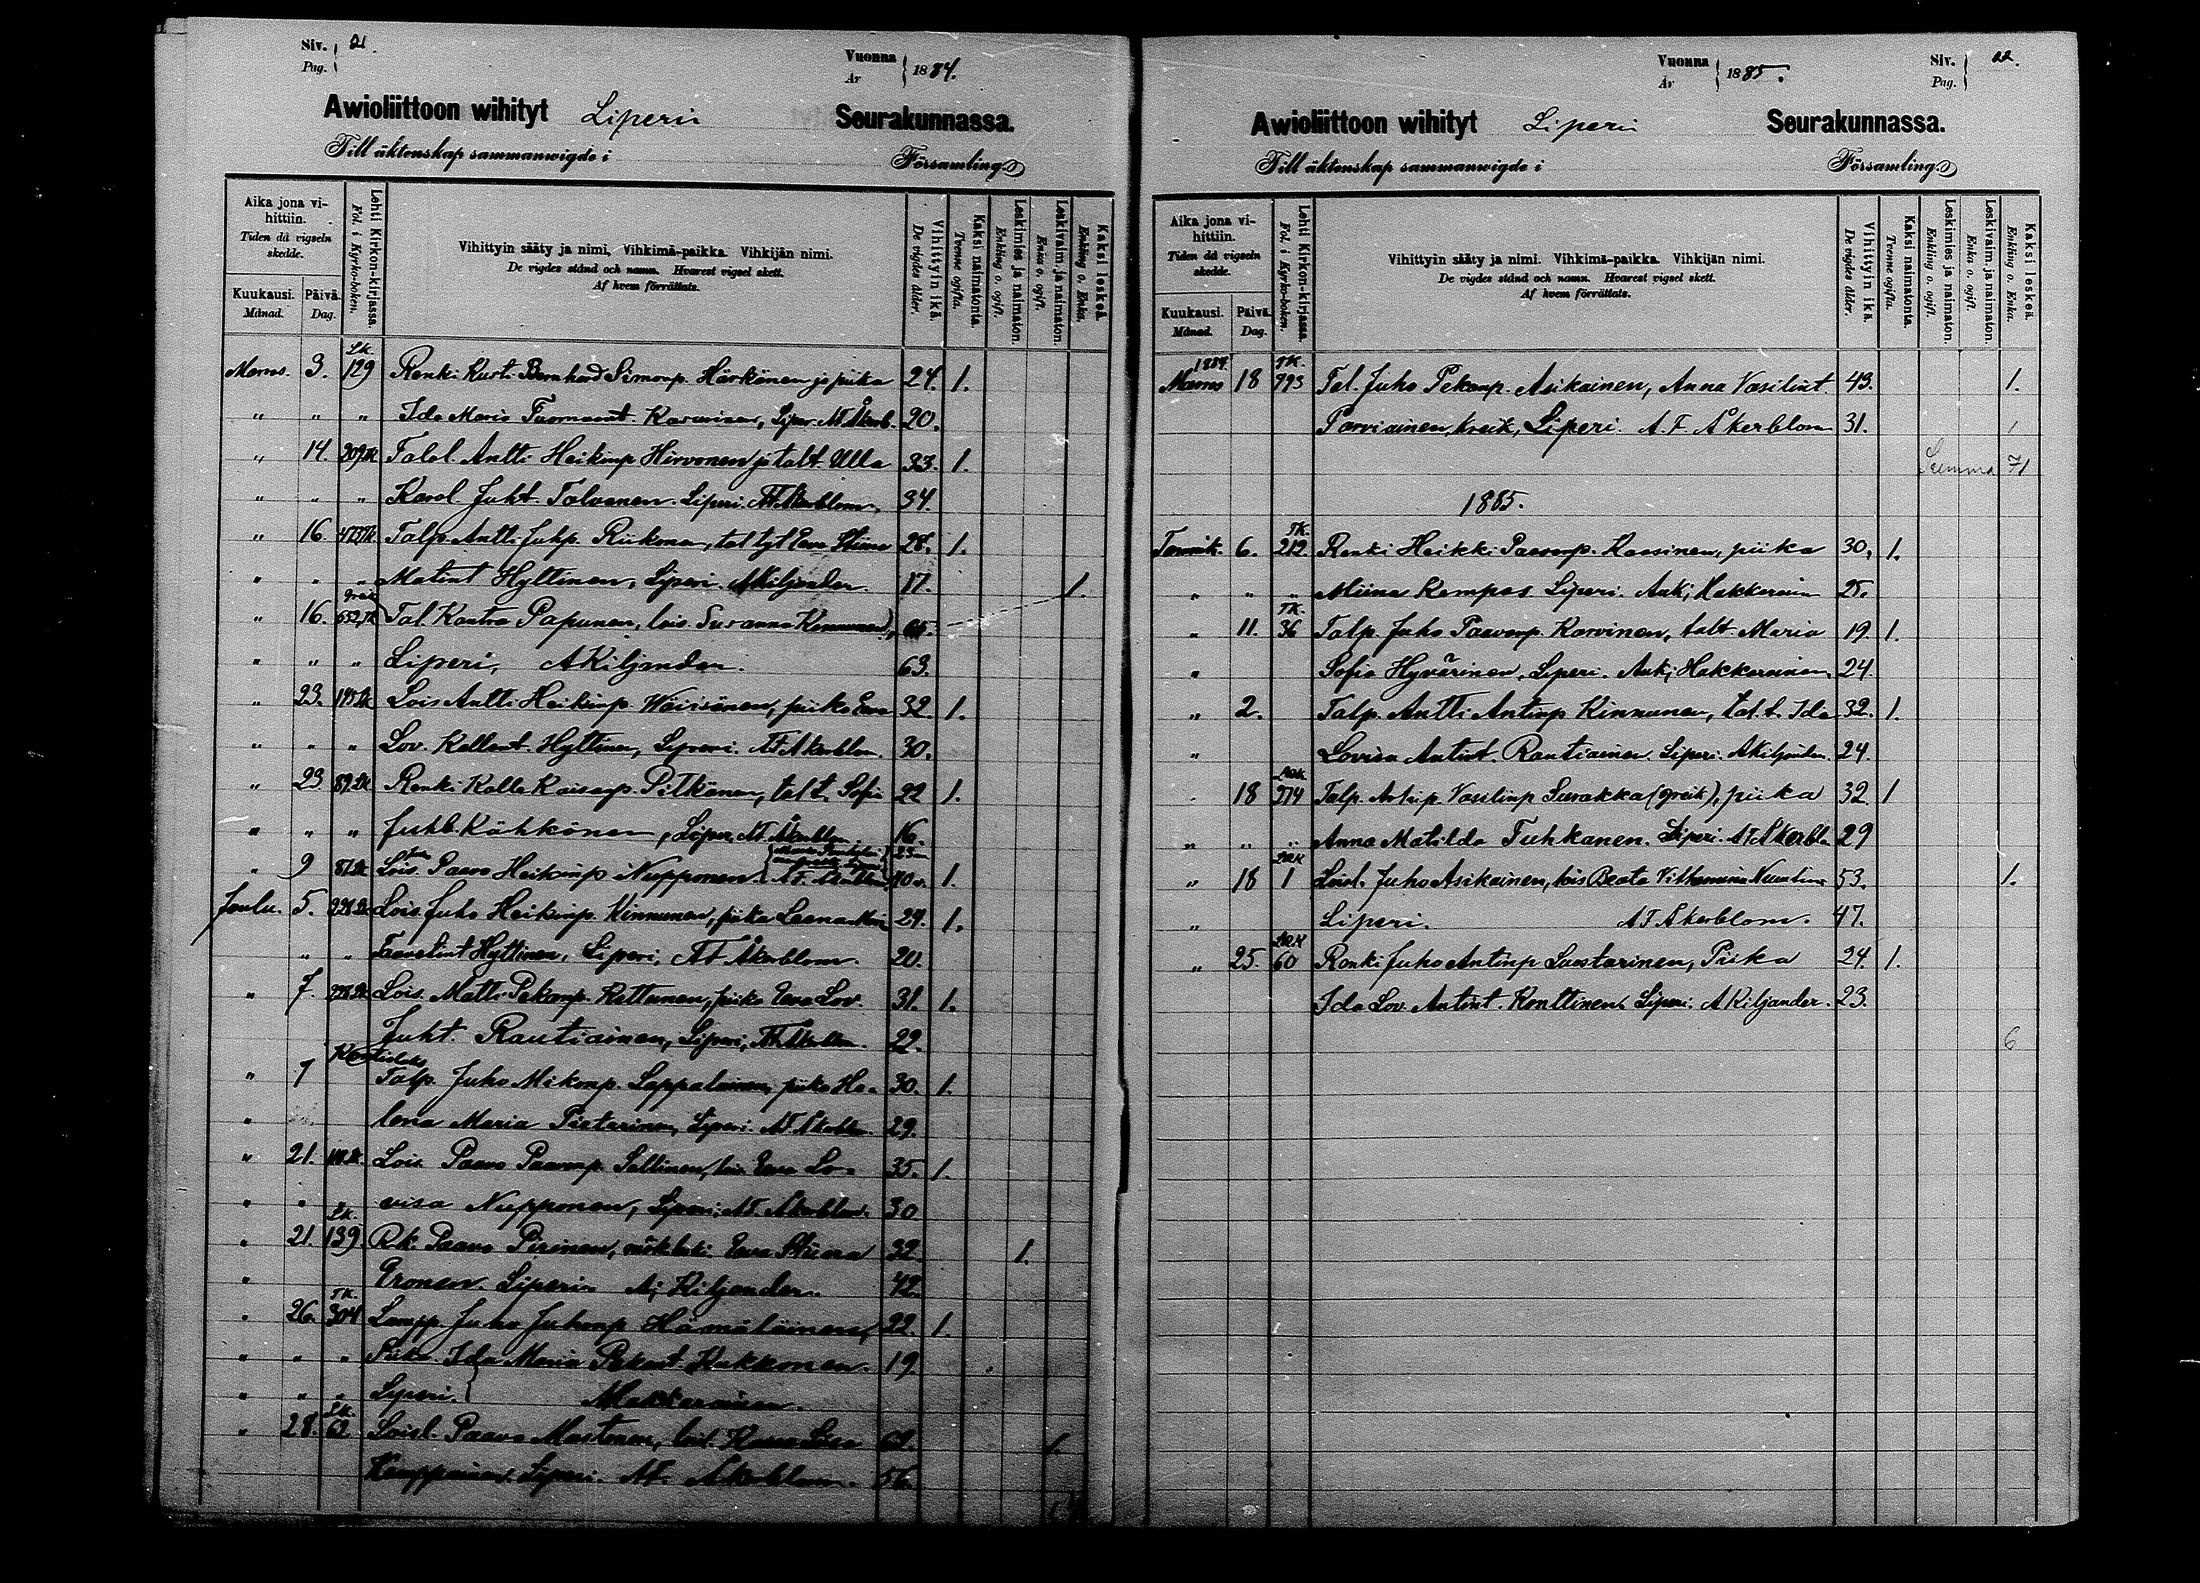 Siv. 21.
Pag.
Vuonna
År 1884.
Awioliittoon wihityt Liperi Seurakunnassa.
Till äktenskap sammanwigde i Församling
Aika jona vihittiin.
Tiden då vigseln skedde.
Kuukausi. Månad.
Päivä. Dag.
Lehti Kirkon-kirjassa.
Fol. i Kyrko-boken.
Vihittyin sääty ja nimi, Vihkimä-paikka. Vihkijän nimi.
De vigdes stånd och namn. Hvarest vigsel skett.
Af hvem förrättats.
Vihittyin ikä.
De vigdes ålder.
Kaksi naimatonta.
Tvenne ogifta.
Leskimies ja naimaton.
Enkling o. ogift.
Leskivaim. ja naimaton.
Enka o. ogift.
Kaksi leskeä.
Enkling o. Enka.
Lk.
Marras. 3. 129 Renki Kusti Bernhard Simonp. Härkönen ja piika 24. 1.
" " " Ida Maria Tuomaant. Karvinen, Liperi. AF Åkerb. 20.
" 14. 209 Talol. Antti Heikinp Hirvonen ja talt. Ulla 33. 1.
" " " Karol. Juht. Tolvanen. Liperi. AF Åkerblom. 34.
" 16. Talp. Antti Juhp. Riikonen, tal tyt Eeva Stiina 28. 1.
" " " Matint Hyttinen, Liperi. AKiljander. 17. 1.
greik
" 16. 652 Tal. Kontra Papunen, lois. Susanna Kinnunen, 65.
" " " Liperi, AKiljander. 63.
" 23. 195 Lois Antti Heikinp. Väisänen, piika Eva 32. 1.
" " " Lov. Kallent. Hyttinen, Liperi. AF Åkerblom. 30.
" 23. 89 Renki Kalle Kaisanp. Pitkänen, tal t. Sofia 22 1.
" " " Juht. Kähkönen, Liperi, AF. Åkerblom 16.
" 9 87 Lois. Paavo Heikinp Nupponen. AF. Åkerblom 40. 1.
Joulu. 5. Lois. Juho Heikinp. Kinnunen, piika Leena Mari 24. 1.
" " Taavetint Hyttinen, Liperi, AF Åkerblom. 20.
" 7. Lois. Matti Pekanp. Kettunen, piika Eeva Lov. 31. 1.
Juht. Rautiainen, Liperi, AF Åkerblom. 22.
Kontiolahti
" 7 Talp. Juho Mikonp. Lappalainen, piika He- 30. 1.
" lena Maria Pietarinen, Liperi. AF Åkerblom. 29.
" 21. Lois. Paavo Paavonp. Sallinen, lois. Eeva Lo- 35. 1.
" " visa Nupponen, Liperi, AF Åkerblom. 30
Lk.
" 21. 139 Rk. Paavo Pirinen, mökleski Eeva Stiina 32 1.
" Eronen. Liperi. A; Kiljander. 42.
TK.
" 26. 304 Lampp. Juho Juhonp Hämäläinen, 22. 1.
" " " Piika Ida Maria Pekant. Kukkonen. 19.
" " " Liperi. Makkonen.
Lk.
" 28. 62. Loisl. Paavo Mustonen, lois. Kaisa Liisa 69. 1
Kemppainen. Liperi. AF. Åkerblom. 56.
Vuonna
År 1885.
Siv. 22.
Pag.
Awioliittoon wihityt Liperi Seurakunnassa.
Till äktenskap sammanwigde i Församling
Aika jona vihittiin.
Tiden då vigseln skedde.
Kuukausi. Månad.
Päivä. Dag.
Lehti Kirkon-kirjassa.
Fol. i Kyrko-boken.
Vihittyin sääty ja nimi. Vihkimä-paikka. Vihkijän nimi.
De vigdes stånd och namn. Hvarest vigsel skett.
Af hvem förrättats.
Vihittyin ikä.
De vigdes ålder.
Kaksi naimatonta.
Tvenne ogifta.
Leskimies ja naimaton.
Enkling o. ogift.
Leskivaim. ja naimaton.
Enka o. ogift.
Kaksi leskeä.
Enkling o. Enka.
1884. TK.
Marras 18 993 Tal. Juho Pekanp. Asikainen, Anna Vasilint. 43. 1.
Parviainen, kreik, Liperi. A. F. Åkerblom 31.
Summa 71
1885.
TK.
Tammik. 6. 212 Renki Heikki Paavonp. Kaasinen, piika 30, 1.
" " " Miina Kempas Liperi. Aukj Hakkarainen 25.
TK.
" 11. 36 Talp. Juho Paavonp. Karvinen, talt. Maria 19. 1.
" Sofia Hyvärinen, Liperi. Aukj Hakkarainen. 24
" 2. Talp. Antti Antinp Kinnunen, tal. t. Ida 32. 1.
" Lovisa Antint. Rautiainen. Liperi. AKiljander. 24.
18 274 Talp. Antip. Vasilinp Surakka (greik), piika 32. 1
" " " Anna Matilda Tuhkanen. Liperi. AF Åkerbl. 29
" 18 1 Loisl. Juho Asikainen, lois Beata Vilhemina Nuutinen 53. 1.
" Liperi. AF Åkerblom. 47.
" 25. 60 Renki Juho Antinp Saastarinen, Piika 24. 1.
Ida Lov. Antint. Konttinen. Liperi. AKiljander. 23.
6